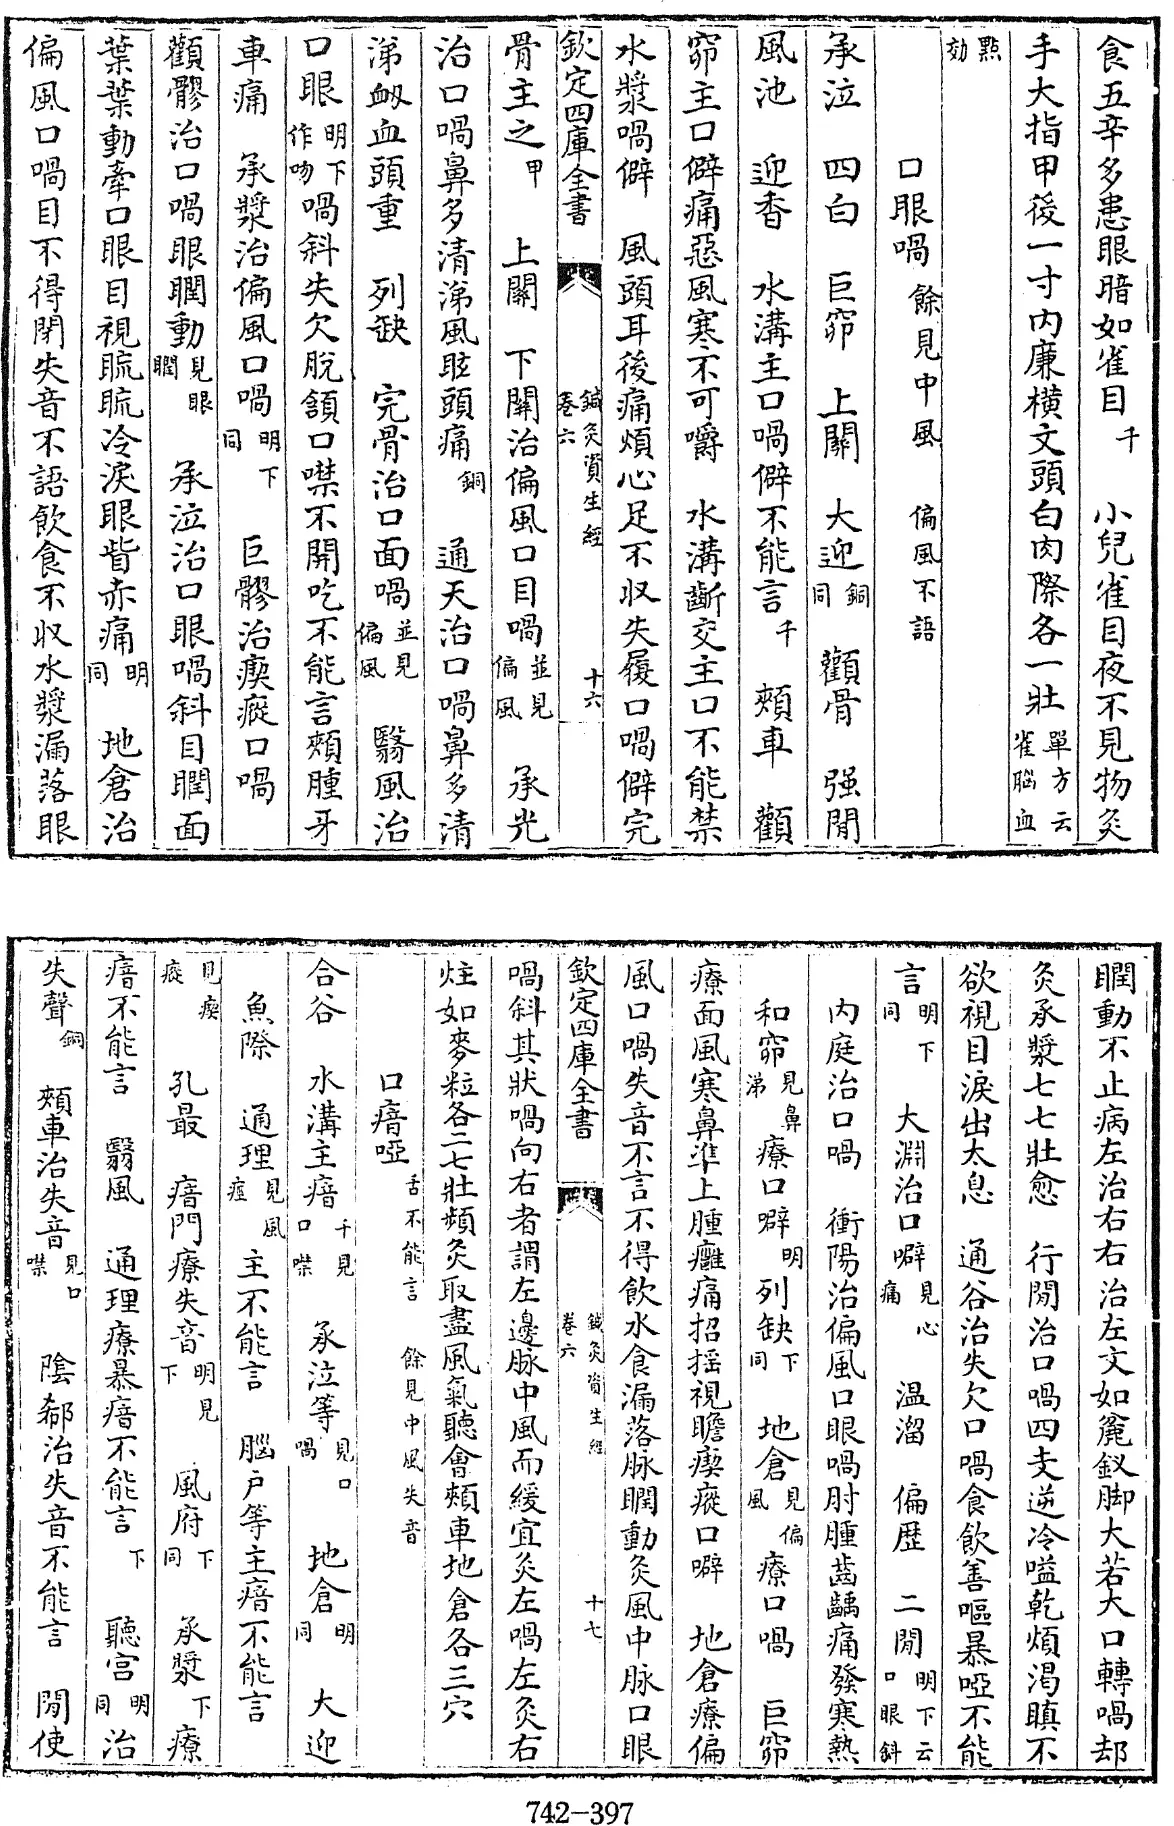 食五辛多患眼暗如雀目千 小兒雀目夜不見物灸
手大指甲後一寸内廉横文頭白肉際各一壯單方云雀腦血
點効
口眼喎餘見中風 偏風不語
承泣 四白 巨窌 上關 大迎銅同 顴骨 强間
風池 迎香 水溝主口喎僻不能言千 頰車 顴
窌主口僻痛惡風寒不可嚼 水溝齗交主口不能禁
水漿喎僻 風頭耳後痛煩心足不收失履口喎僻完
欽定四庫全書 鍼灸資生經卷六 十六
骨主之甲 上關 下關治偏風口目喎並見偏風 承光
治口喎鼻多清涕風眩頭痛銅 通天治口喎鼻多清
涕衂血頭重 列缺 完骨治口面喎並見偏風 翳風治
口眼明下作吻喎斜失欠脫頷口噤不開吃不能言頰腫牙
車痛 承漿治偏風口喎明下同 巨髎治瘈瘲口喎
顴髎治口喎眼瞤動見眼瞤 承泣治口眼喎斜目瞤面
葉葉動牽口眼目視䀮䀮冷淚眼眥赤痛明同 地倉治
偏風口喎目不得閉失音不語飲食不收水漿漏落眼
瞤動不止病左治右右治左文如麄釵脚大若大口轉喎却
灸承漿七七壯愈 行間治口喎四支逆冷嗌乾煩渴瞋不
欲視目淚出太息 通谷治失欠口喎食飲善嘔暴啞不能
言明下同 大淵治口噼見心痛 温溜 偏歴 二間明下云口眼斜
内庭治口喎 衝陽治偏風口眼喎肘腫齒齲痛發寒熱
和窌見鼻涕療口噼明 列缺下同 地倉見偏風療口喎 巨窌
療面風寒鼻準上腫癰痛招揺視瞻瘈瘲口噼 地倉療偏
風口喎失音不言不得飲水食漏落脉瞤動灸風中脉口眼
欽定四庫全書 鍼灸資生經卷六 十七
喎斜其狀喎向右者謂左邊脉中風而緩宜灸左喎左灸右
炷如麥粒各二七壯頻灸取盡風氣聽會頰車地倉各三穴
口瘖啞舌不能言 餘見中風失音
合谷 水溝主瘖千見口噤 承泣等見口喎 地倉明同 大迎
魚際 通理見風痓 主不能言 腦戶等主瘖不能言
見瘈瘲 孔最 瘖門療失音明見下 風府下同 承漿下療
瘖不能言 翳風 通理療暴瘖不能言下 聽宫明同治
失聲銅 頰車治失音見口噤 陰郄治失音不能言 間使
742-397